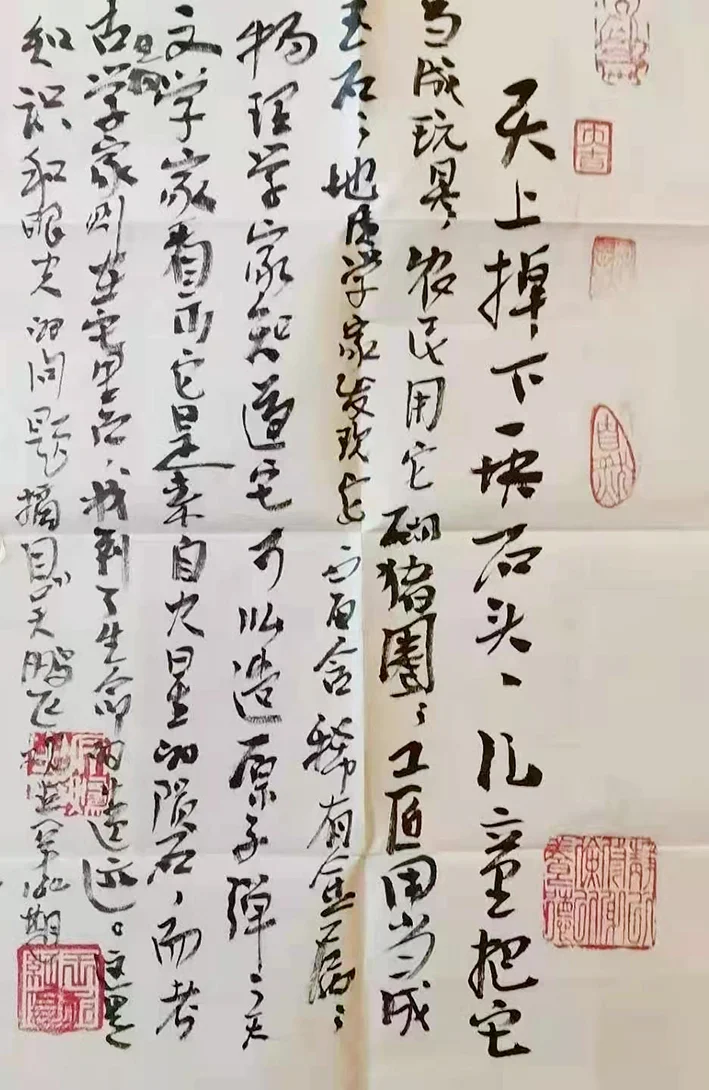 天上掉下一块石头、儿童把它
当成玩具，农民用它砌猪圈；工匠用当成
玉石；地质学家发现它里面含稀有金属；
物理学家知道它可以造原子弹；天
文学家看出它是来自火星的陨石，而考
古学家则在它里面，找到了生命的遗迹。这是
知识和眼光的问题摘自吴鹏飞
静以修身俭以养德